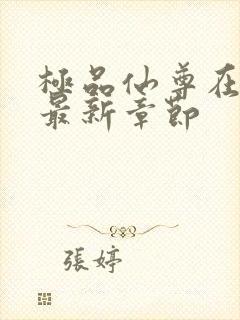 極品仙尊在
最新章節
張婷